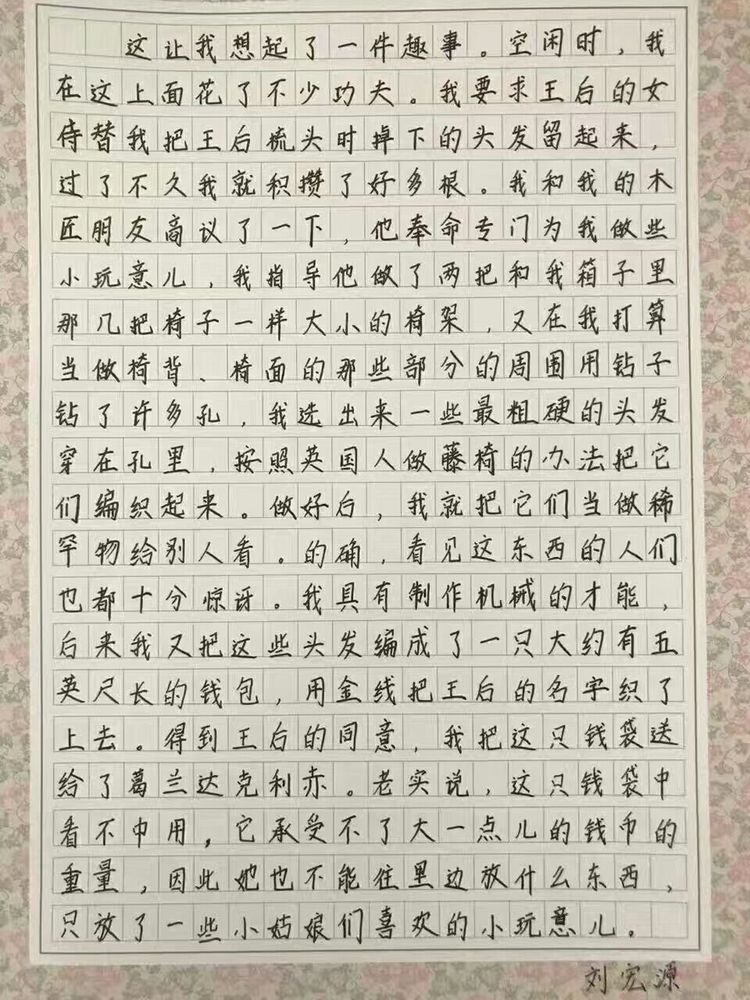 这让我想起了一件趣事。空闲时，我
在这上面花了不少功夫。我要求王后的女
侍替我把王后梳头时掉下的头发留起来，
过了不久我就积攒了好多根。我和我的木
匠朋友商议了一下，他奉命专门为我做些
小玩意儿，我指导他做了两把和我箱子里
那几把椅子一样大小的椅架，又在我打算
当做椅背、椅面的那些部分的周围用钻子
钻了许多孔，我选出来一些最粗硬的头发
穿在孔里，按照英国人做藤椅的办法把它
们编织起来。做好后，我就把它们当做稀
罕物给别人看。的确，看见这东西的人们
也都十分惊讶。我具有制作机械的才能，
后来我又把这些头发编成了一只大约有五
英尺长的钱包，用金线把王后的名字织了
上去。得到王后的同意，我把这只钱袋送
给了葛兰达克利赤。老实说，这只钱袋中
看不中用，它承受不了大一点儿的钱币的
重量，因此她也不能往里边放什么东西，
只放了一些小姑娘们喜欢的小玩意儿。
刘宏源